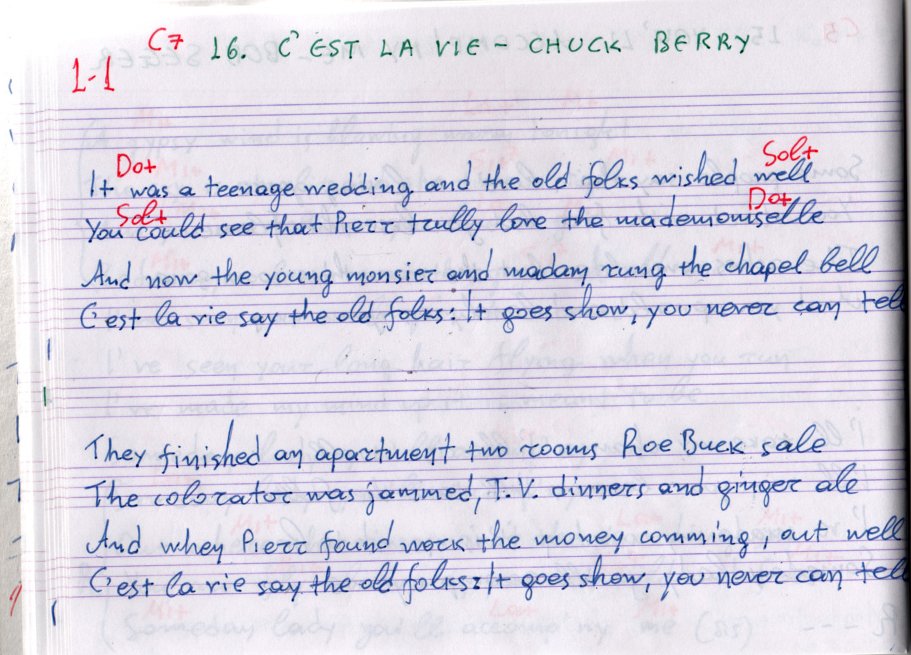 C7 16. C'EST LA VIE - CHUCK BERRY
1-1
Do+ Sol+
It was a teenage wedding and the old folks wished well
Sol+ Do+
You could see that Pierr trully love the mademoiselle
And now the young monsier and madam, rung the chapel bell
C'est la vie say the old folks: It goes show, you never can tell
They finished an apartment two rooms Roe Buck sale
The colorator was jammed, T.V. dinners and ginger ale
And when Pierr found work the money comming, out well
C'est la vie say the old folks: It goes show, you never can tell